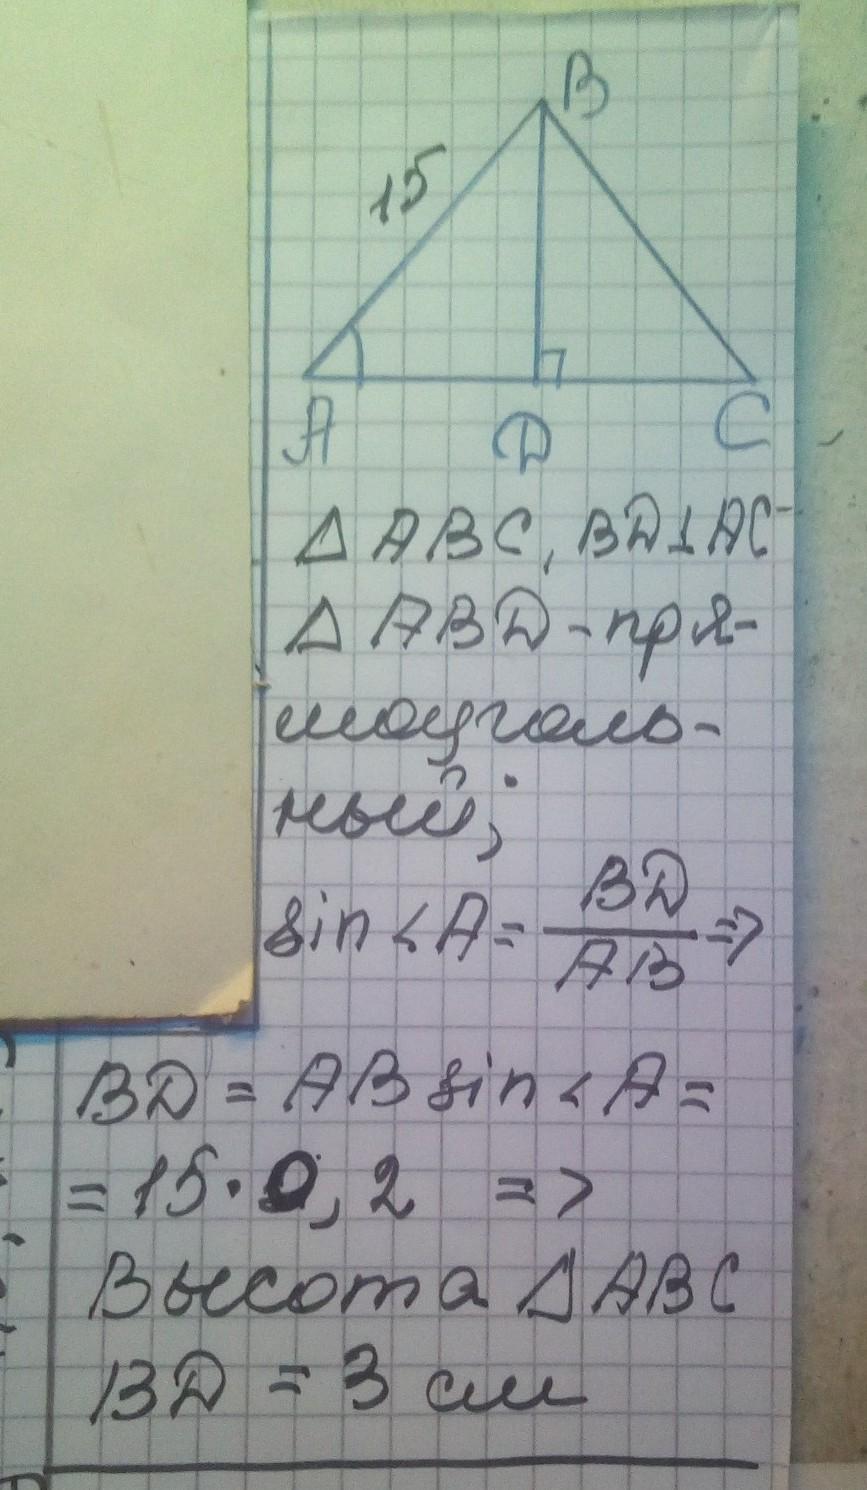 B
15
A D C
Δ ABC, BD⊥AC
Δ ABD - пря-
моуголь-
ный;
sin < A = BD/AB =>
BD = AB sin < A =
= 15 · 0,2 =>
Высота Δ ABC
BD = 3 см